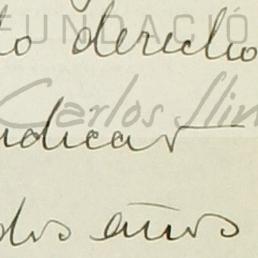 FUNDACIÓ
to derecho
Carlos Slim
udicar
dos años